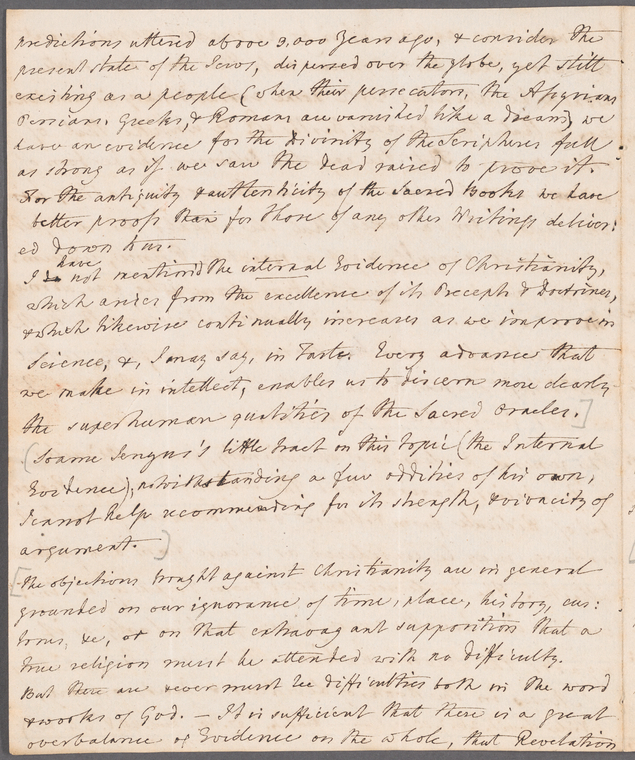 predictions uttered above 3,000 Years ago, & consider the
present state of the Jews, dispersed over the globe, yet still
existing as a people (when their persecutors, the Assyrians
Persians, Greeks, & Romans are vanished like a dream) we
have an evidence for the Divinity of the Scriptures full
as strong as if we saw the Dead raised to prove it.
For the antiquity & authenticity of the Sacred Books we have
better proofs than for those of any other Writings deliver:
ed down to us.
have
I not mentioned the internal Evidence of Christianity,
which arises from the excellence of its Precepts & Doctrines,
& which likewise continually increases as we improve in
Science, &, I may say, in Taste. Every advance that
we make in intellect, enables us to discern more clearly
the superhuman qualities of the Sacred Oracles.]
(Soame Jenyns's little tract on this topic (the Internal
Evidence), notwithstanding a few oddities of his own,
I cannot help recommending for its strength, & vivacity of
argument.]
[The objections brought against Christianity are in general
grounded on our ignorance of time, place, history, cus:
toms, &c, or on that extravagant supposition that a
true religion must be attended with no difficulty.
But there are & ever must be difficulties both in the word
& works of God. — It is sufficient that there is a great
overbalance of Evidence on the whole, that Revelation